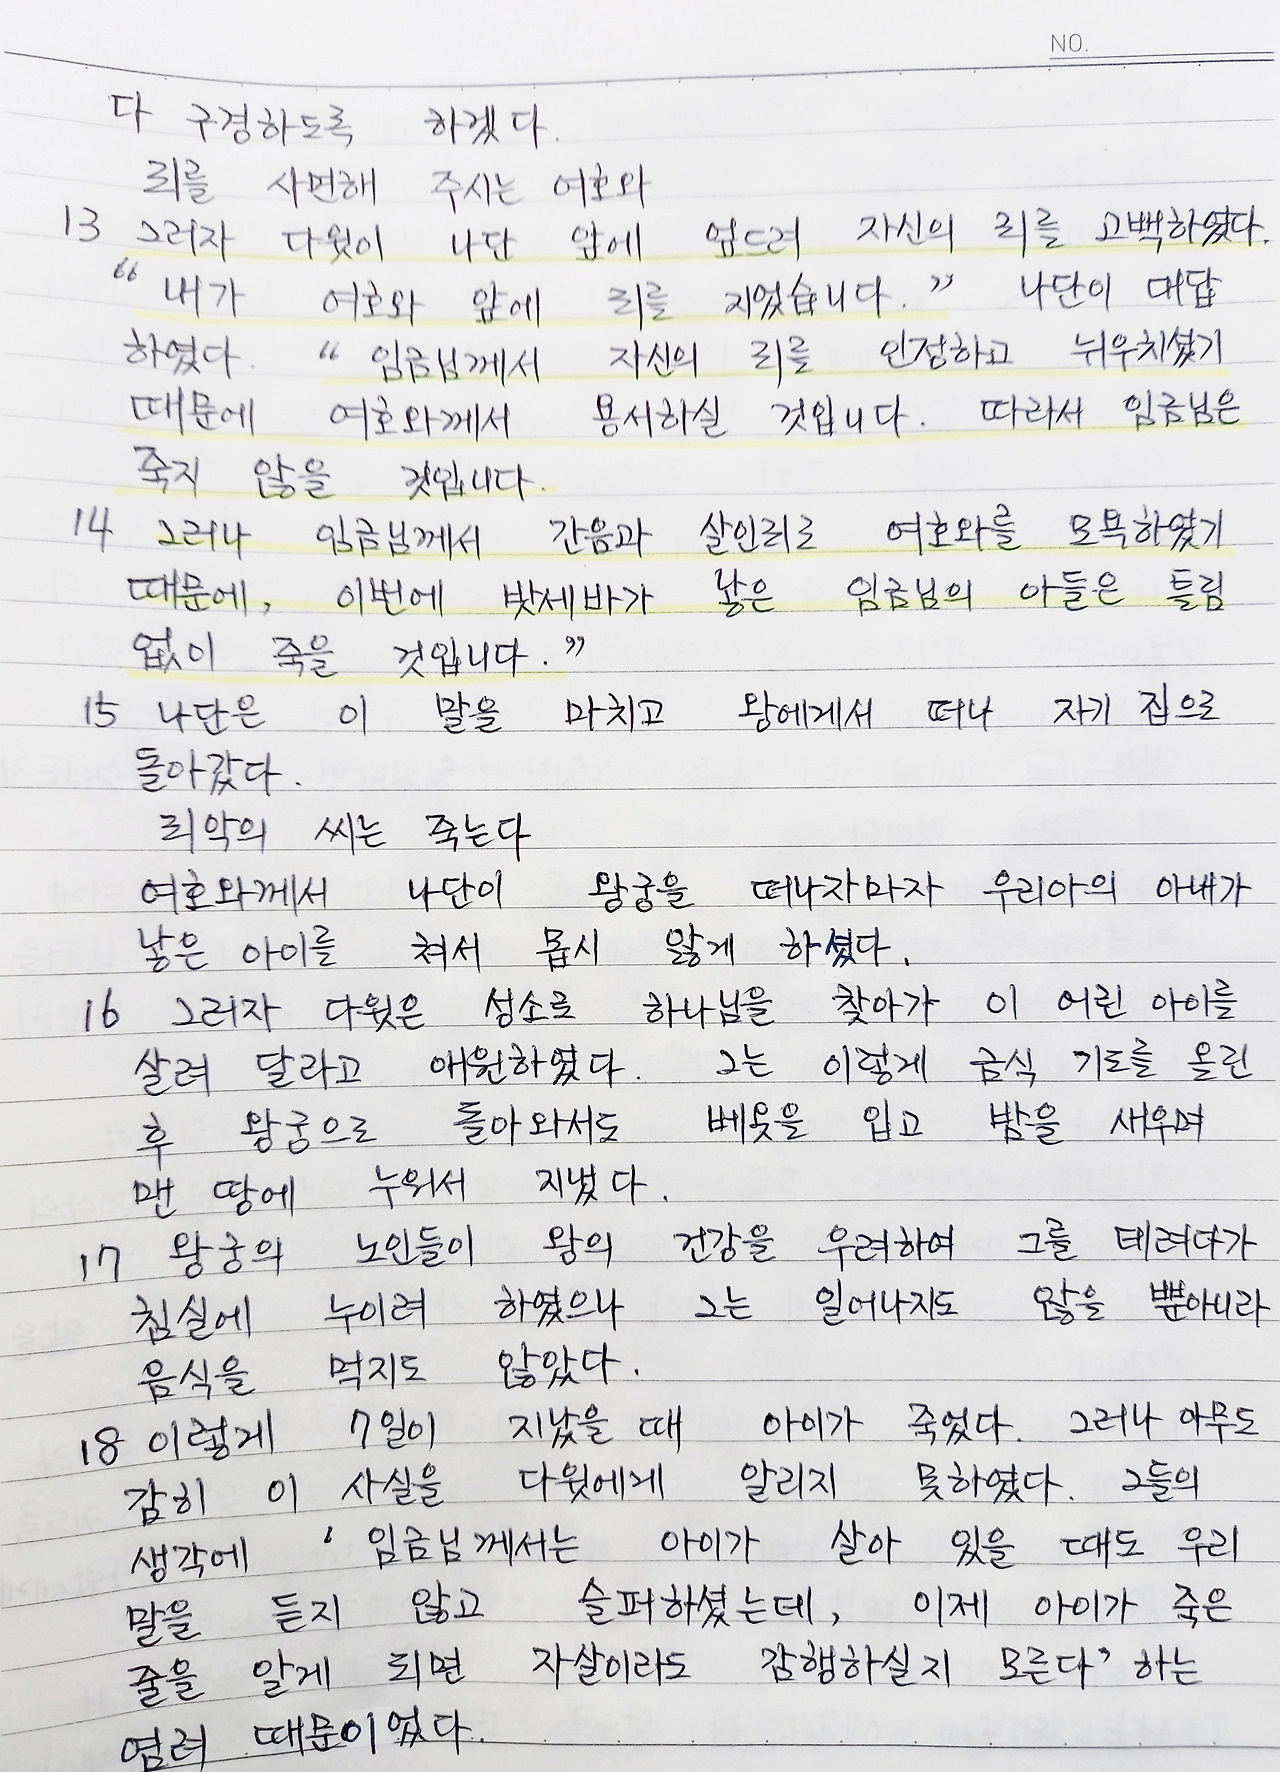 NO.
다 구경하도록 하겠다.
죄를 사면해 주시는 여호와
13 그러자 다윗이 나단 앞에 엎드려 자신의 죄를 고백하였다.
“ 내가 여호와 앞에 죄를 지었습니다.” 나단이 대답
하였다. “ 임금님께서 자신의 죄를 인정하고 뉘우치셨기
때문에 여호와께서 용서하실 것입니다. 따라서 임금님은
죽지 않을 것입니다.
14 그러나 임금님께서 간음과 살인죄로 여호와를 모욕하였기
때문에, 이번에 밧세바가 낳은 임금님의 아들은 틀림
없이 죽을 것입니다.”
15 나단은 이 말을 마치고 왕에게서 떠나 자기 집으로
돌아갔다.
죄악의 씨는 죽는다
여호와께서 나단이 왕궁을 떠나자마자 우리아의 아내가
낳은 아이를 쳐서 몹시 앓게 하셨다.
16 그러자 다윗은 성소로 하나님을 찾아가 이 어린 아이를
살려 달라고 애원하였다. 그는 이렇게 금식 기도를 올린
후 왕궁으로 돌아와서도 베옷을 입고 밤을 새우며
맨 땅에 누워서 지냈다.
17 왕궁의 노인들이 왕의 건강을 우려하여 그를 데려다가
침실에 누이려 하였으나 그는 일어나지도 않을 뿐아니라
음식을 먹지도 않았다.
18 이렇게 7일이 지났을 때 아이가 죽었다. 그러나 아무도
감히 이 사실을 다윗에게 알리지 못하였다. 그들의
생각에 ‘ 임금님께서는 아이가 살아 있을 때도 우리
말을 듣지 않고 슬퍼하셨는데, 이제 아이가 죽은
줄을 알게 되면 자살이라도 감행하실지 모른다’ 하는
염려 때문이었다.